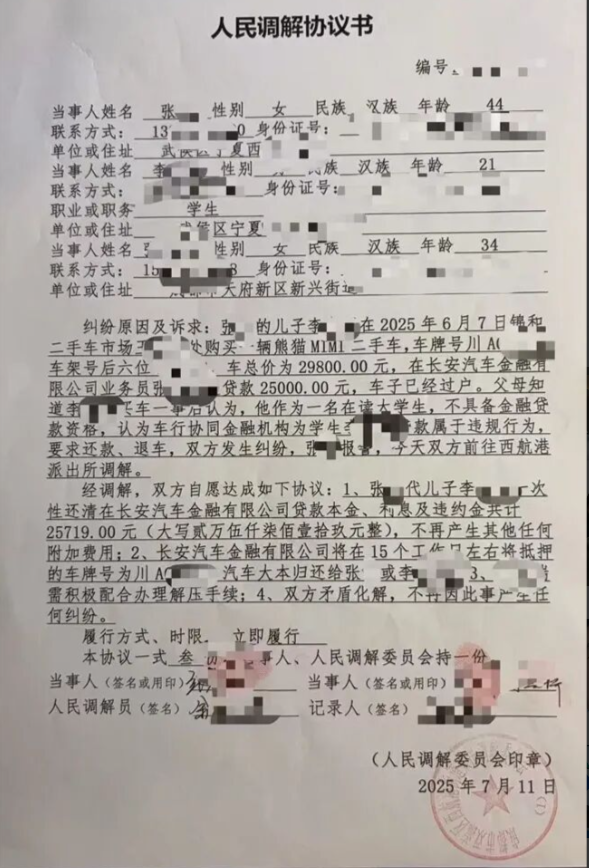 人民调解协议书
编号
当事人姓名 张 性别 女 民族 汉族 年龄 44
联系方式：13 0 身份证号：
单位或住址 武侯区宁夏西
当事人姓名 李 性别 民族 汉族 年龄 21
联系方式： 身份证号：
职业或职务 学生
单位或住址 武侯区宁夏
当事人姓名 张 性别 女 民族 汉族 年龄 34
联系方式：15 3 身份证号：
单位或住址 成都市天府新区新兴街道
纠纷原因及诉求：张 的儿子李 在2025年6月7日锦和
二手车市场 处购买一辆熊猫MIMI二手车,车牌号川A
车架号后六位 ，车总价为29800.00元，在长安汽车金融有
限公司业务员张 贷款25000.00元，车子已经过户。父母知
道李 买车一事后认为，他作为一名在读大学生，不具备金融贷
款资格，认为车行协同金融机构为学生李 贷款属于违规行为，
要求还款、退车，双方发生纠纷，张 报警，今天双方前往西航港
派出所调解。
经调解，双方自愿达成如下协议：1、张 代儿子李 次
性还清在长安汽车金融有限公司贷款本金、利息及违约金共计
25719.00元（大写贰万伍仟柒佰壹拾玖元整），不再产生其他任何
附加费用；2、长安汽车金融有限公司将在15个工作日左右将抵押
的车牌号为川A 汽车大本归还给张 或李 3、
需积极配合办理解压手续；4、双方矛盾化解，不再因此事产生任
何纠纷。
履行方式、时限. 立即履行
本协议一式 叁 份 事人、人民调解委员会持一份
当事人（签名或用印） 当事人（签名或用印）
人民调解员（签名） 记录人（签名）
（人民调解委员会印章）
2025年7月11日